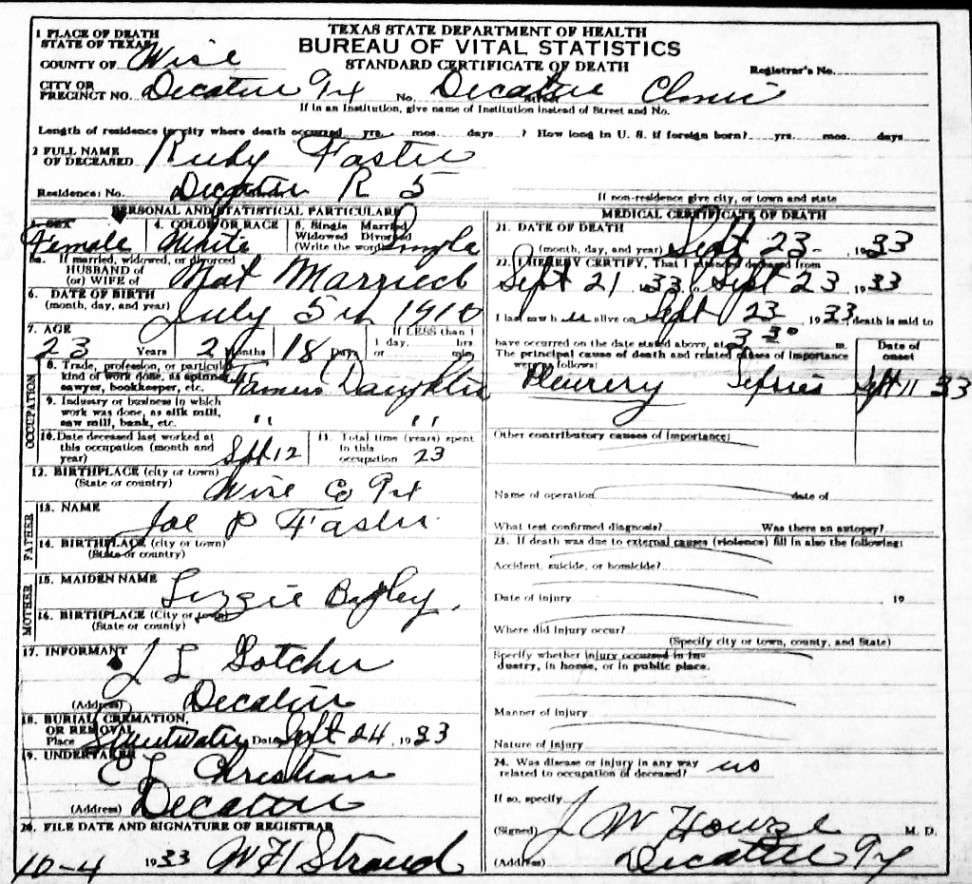 TEXAS STATE DEPARTMENT OF HEALTH
BUREAU OF VITAL STATISTICS
STANDARD CERTIFICATE OF DEATH
1 PLACE OF DEATH
STATE OF TEXAS
COUNTY OF Wise
Registrar's No.
CITY OR PRECINCT NO. Decatur Tx No. Decatur Clinic
If in an Institution, give name of Institution instead of Street and No.
Length of residence in city where death occurred yrs. mos. days ? How long in U. S. if foreign born? yrs. mos. days
2 FULL NAME OF DECEASED Ruby
Residence: No. Decatur R 5
If non-residence give city, or town and state
PERSONAL AND STATISTICAL PARTICULARS
3. SEX Female
4. COLOR OR RACE White
5. Single Married Widowed Divorced (Write the word) Single
5a. If married, widowed, or divorced
HUSBAND of (or) WIFE of Not Married
6. DATE OF BIRTH (month, day, and year) July 5th 1910
7. AGE 23 Years 2 Months 18 Days If LESS than 1 1 day, hrs. or min.
OCCUPATION
8. Trade, profession, or particular kind of work done, as spinner, sawyer, bookkeeper, etc. Daughter
9. Industry or business in which work was done, as silk mill, saw mill, bank, etc. " " " "
10. Date deceased last worked at this occupation (month and year) Sept 12
11. Total time (years) spent in this occupation 23
12. BIRTHPLACE (city or town) (State or country) Wise Co Tx
FATHER
13. NAME Joe P
14. BIRTHPLACE (city or town) (State or country)
MOTHER
15. MAIDEN NAME Lizzie
16. BIRTHPLACE (City or town) (State or country)
17. INFORMANT J L Gotcher
(Address) Decatur
18. BURIAL, CREMATION, OR REMOVAL
Place Sweetwater Date Sept 24, 1933
19. UNDERTAKER C L Christian
(Address) Decatur
20. FILE DATE AND SIGNATURE OF REGISTRAR
10-4 1933
MEDICAL CERTIFICATE OF DEATH
21. DATE OF DEATH
(month, day, and year) Sept 23 1933
22. I HEREBY CERTIFY, That I attended deceased from
Sept 21 1933, Sept 23 1933
I last saw h alive on Sept 23 1933, death is said to
have occurred on the date stated above, at 3 30 m.
The principal cause of death and related causes of importance were as follows:
Date of onset
Sept 11 33
Other contributory causes of importance:
Name of operation date of
What test confirmed diagnosis? Was there an autopsy?
23. If death was due to external causes (violence) fill in also the following:
Accident, suicide, or homicide?
Date of injury 19
Where did injury occur?
(Specify city or town, county, and State)
Specify whether injury occurred in industry, in home, or in public place.
Manner of injury
Nature of injury
24. Was disease or injury in any way related to occupation of deceased? no
If so, specify
(Signed) J W M. D.
(Address) Decatur Tx